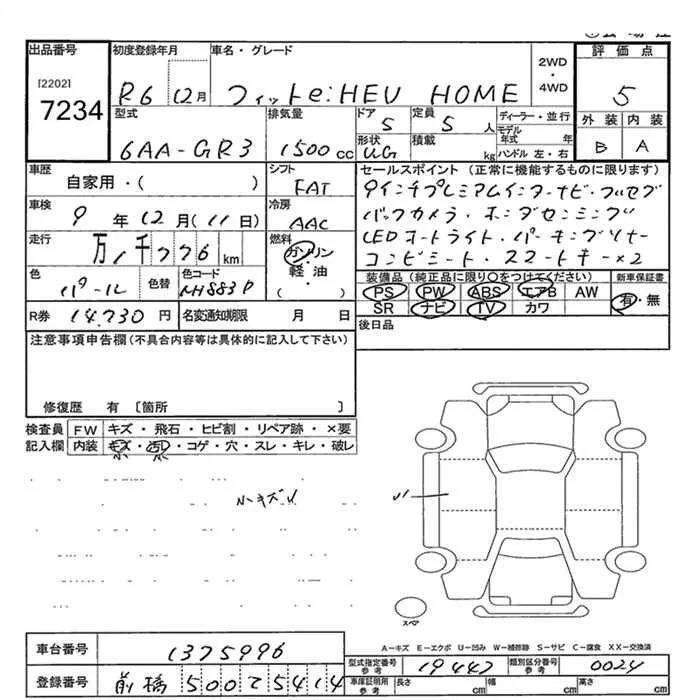 出品番号 初度登録年月 車名・グレード 2WD・4WD 評価点
[2202]
7234 R6 12月 フィットe:HEV HOME 5
型式 排気量 ドア 定員 ディーラー・並行 外装 内装
6AA-GR3 1500 cc 5 5人 モデル年式 年 B A
形状 積載 kg ハンドル 左・右
UG
車歴 シフト セールスポイント(正常に機能するものに限ります)
自家用・( ) FAT 9インチプレミアムインターナビ・フルセグ
車検 冷房 バックカメラ・ホンダセンシング
9年12月(11日) AAC LEDオートライト・パーキングソナー
走行 燃料 コンビシート・スマートキー×2
万1千776km ガソリン・軽油・( )
色 色替 色コード 装備品(純正品に限り○をつけてください) 新車保証書
パール NH883P PS PW ABS エアB AW 有・無
SR ナビ TV カワ
R券 14,730円 名変通知期限 月 日 後日品
注意事項申告欄(不具合内容等は具体的に記入して下さい)
修復歴 有 〔箇所 〕
検査員 FW キズ・飛石・ヒビ割・リペア跡・×要
記入欄 内装 キズ・汚レ・コゲ・穴・スレ・キレ・破レ
小 小
小キズU
スペア
A-キズ E-エクボ U-凹み W-補修跡 S-サビ C-腐食 XX-交換済
車台番号 1375996
型式指定番号 参考 19447 類別区分番号 参考 0024
登録番号 前橋 500 て 5414
車庫証明用 参考 長さ cm 幅 cm 高さ cm